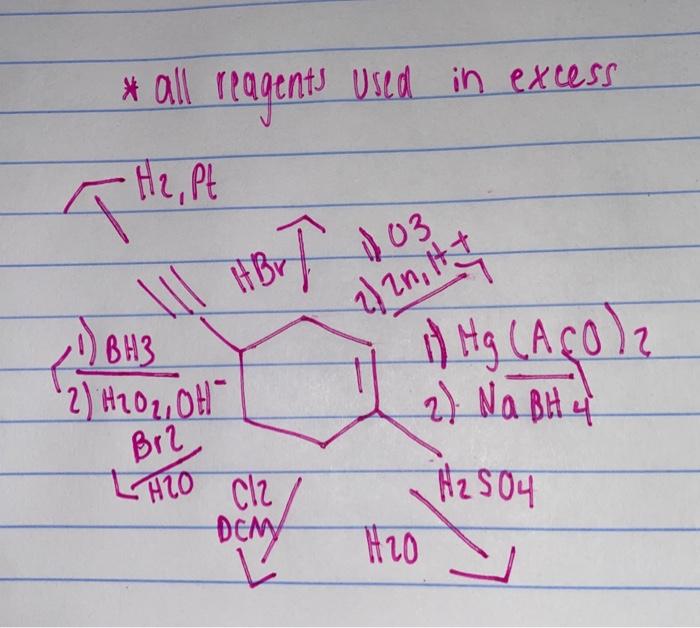 * all reagents used in excess
H2, Pt
HBr
1) O3
2) Zn, H+
1) BH3
2) H2O2, OH-
1) Hg (AcO)2
2) NaBH4
Br2
H2O
Cl2
DCM
H2SO4
H2O